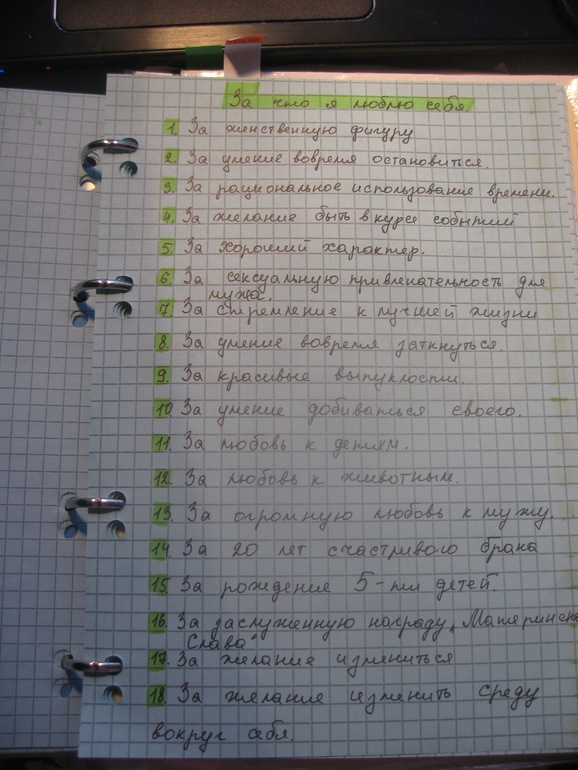 За что я люблю себя.
1. За женственную фигуру
2. За умение вовремя остановиться.
3. За рациональное использование времени.
4. За желание быть в курсе событий
5. За хороший характер.
6. За сексуальную привлекательность для
мужа.
7. За стремление к лучшей жизни
8. За умение вовремя заткнуться.
9. За красивые выпуклости.
10. За умение добиваться своего.
11. За любовь к детям.
12. За любовь к животным.
13. За огромную любовь к мужу.
14. За 20 лет счастливого брака
15. За рождение 5-ти детей.
16. За заслуженную награду „Материнска
Слава"
17. За желание измениться
18. За желание изменить среду
вокруг себя.